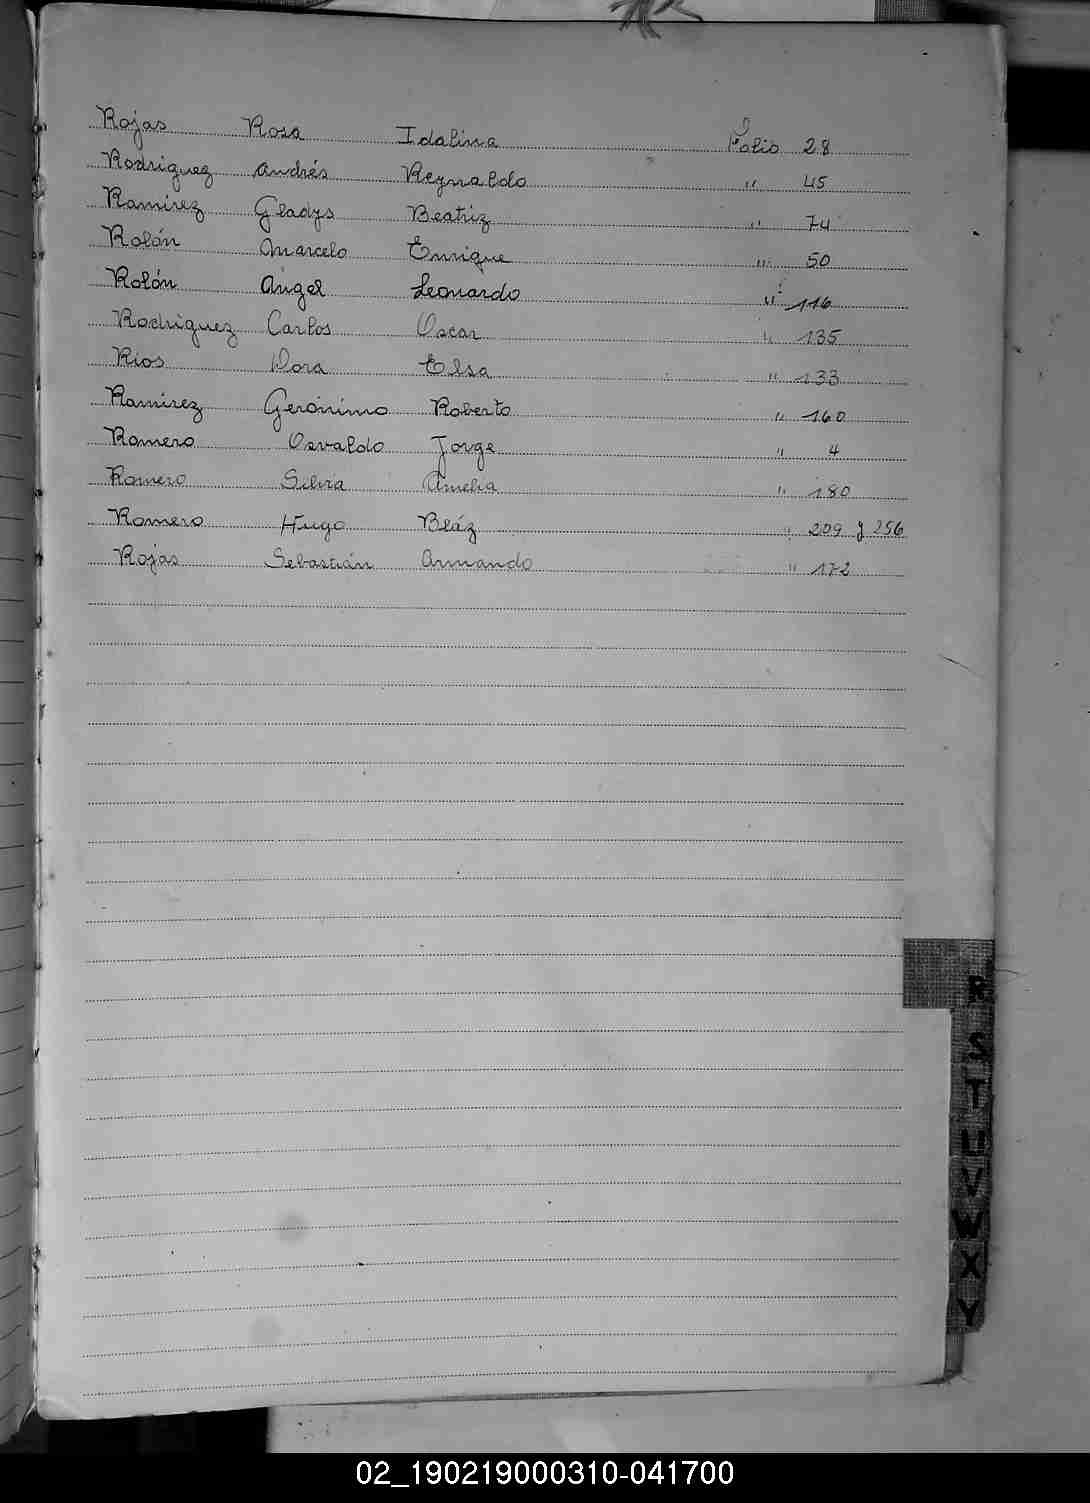 Rojas Rosa Idalina Folio 28
Rodriguez Andrés Reynaldo " 45
Ramírez Gladys Beatriz " 74
Rolón Marcelo Enrique " 50
Rolón Ángel Leonardo " 116
Rodriguez Carlos Oscar " 135
Rios Dora Elsa " 133
Ramirez Gerónimo Roberto " 160
Romero Osvaldo Jorge " 4
Romero Silvia Amelia " 180
Romero Hugo Bláz " 209 y 256
Rojas Sebastián Armando " 172
R
S
T
U
V
W
X
Y
02_190219000310-041700